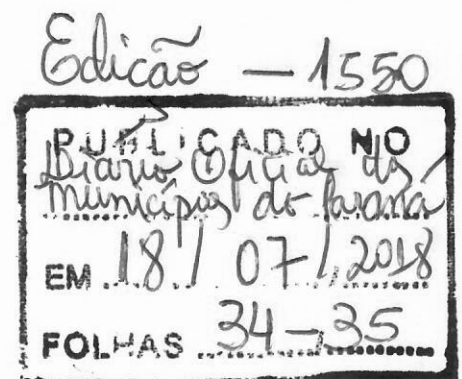 Edicão — 1550
PUBLICADO NO
Diário Oficial ds
Municípios do Paraná
EM 18 / 07 / 2018
FOLHAS 34-35